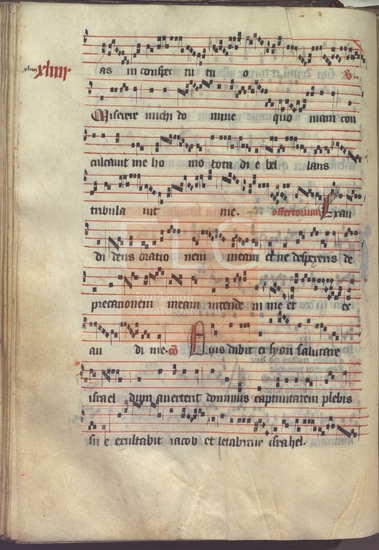 xliiij
as in conspectu tu o
Miserere michi do mine quo niam con
culcavit me ho mo tota di e bel lans
tribula vit me. offertorium Exau
di deus oratio nem meam et ne despexeris de
precationem meam intende in me et ex
au di me. co Quis dabit ex syon salutare
israel dum averterit dominus captivitatem plebis
su e exultabit iacob et letabitur israhel.